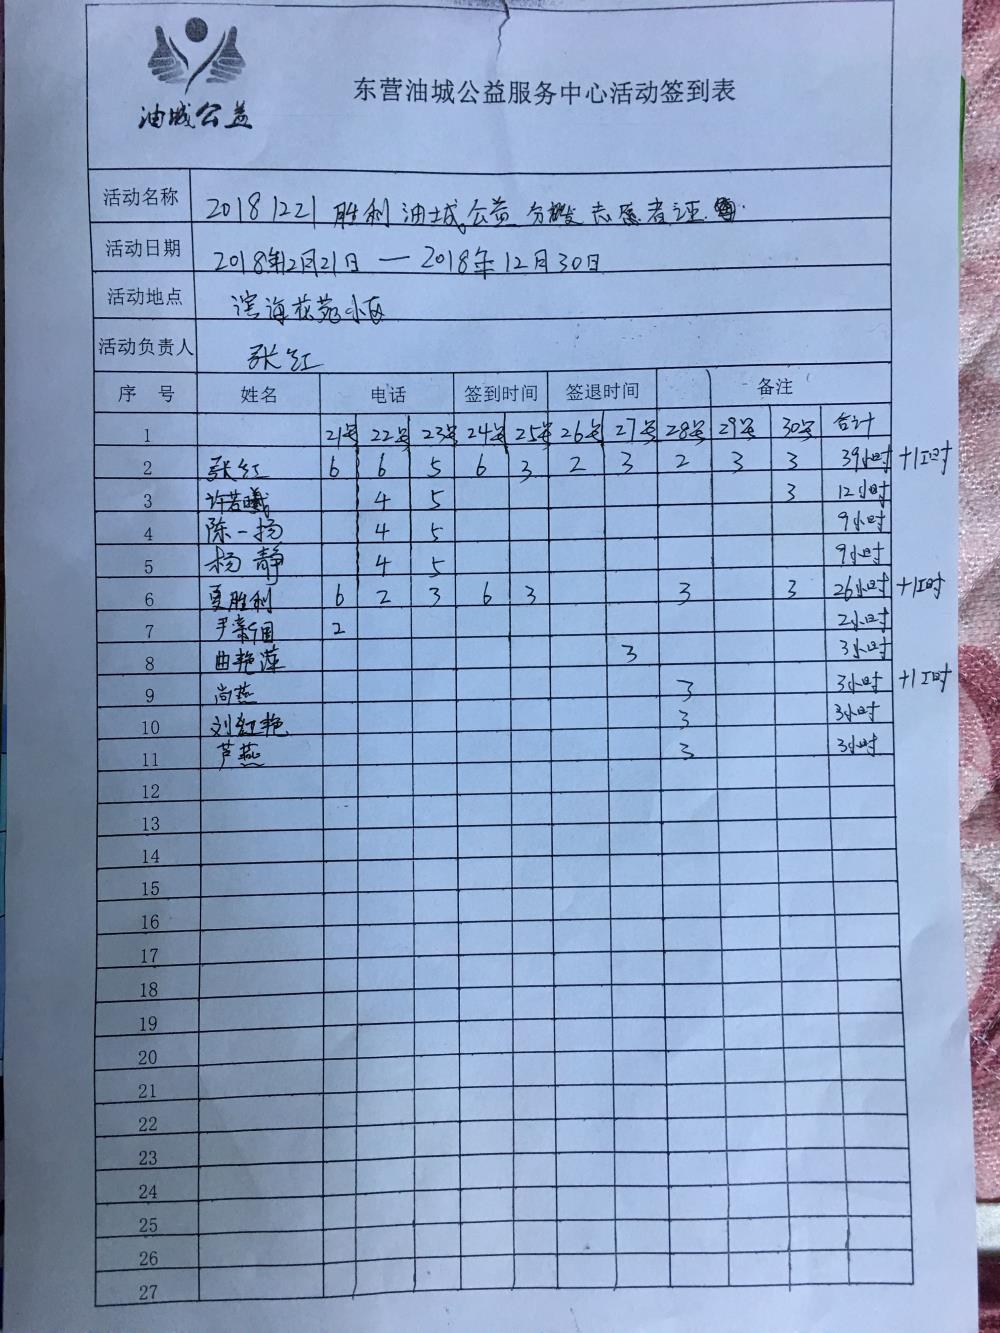 油城公益
东营油城公益服务中心活动签到表
活动名称 20181221 胜利油城公益分发志愿者证
活动日期 2018年12月21日 — 2018年12月30日
活动地点 滨海花苑小区
活动负责人 张红
序 号 姓名 电话 签到时间 签退时间 备注
1 21号 22号 23号 24号 25号 26号 27号 28号 29号 30号 合计
2 张红 6 6 5 6 3 2 3 2 3 3 39小时 +1工时
3 许若曦 4 5 3 12小时
4 陈一扬 4 5 9小时
5 杨静 4 5 9小时
6 夏胜利 6 2 3 6 3 3 3 26小时 +1工时
7 尹新国 2 2小时
8 曲艳萍 3 3小时
9 尚燕 3 3小时 +1工时
10 刘红艳 3 3小时
11 芦燕 3 3小时
12
13
14
15
16
17
18
19
20
21
22
23
24
25
26
27